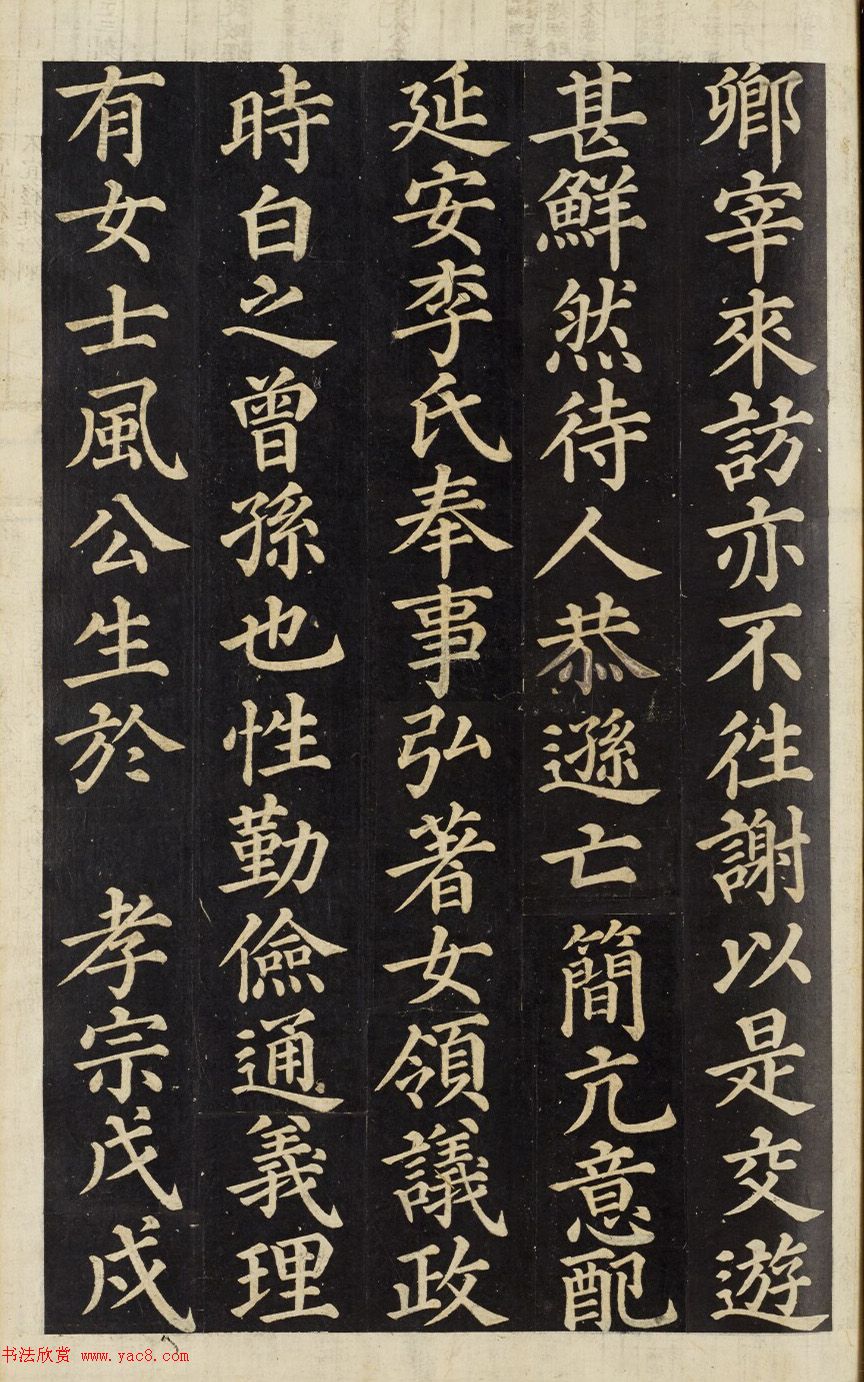 卿宰來訪亦不徃謝以是交遊
甚鮮然待人恭遜亡簡亢意配
延安李氏奉事弘著女領議政
時白之曾孫也性勤儉通義理
有女士風公生於 孝宗戊戍
书法欣赏 www.yac8.com